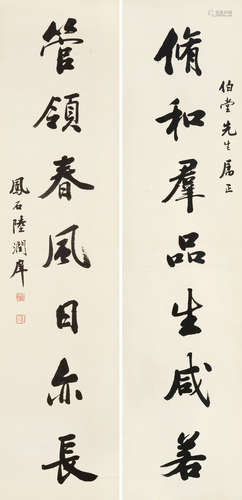 伯堂先生属正
脩和羣品生咸若
管領春風日亦長
鳳石陸潤庠